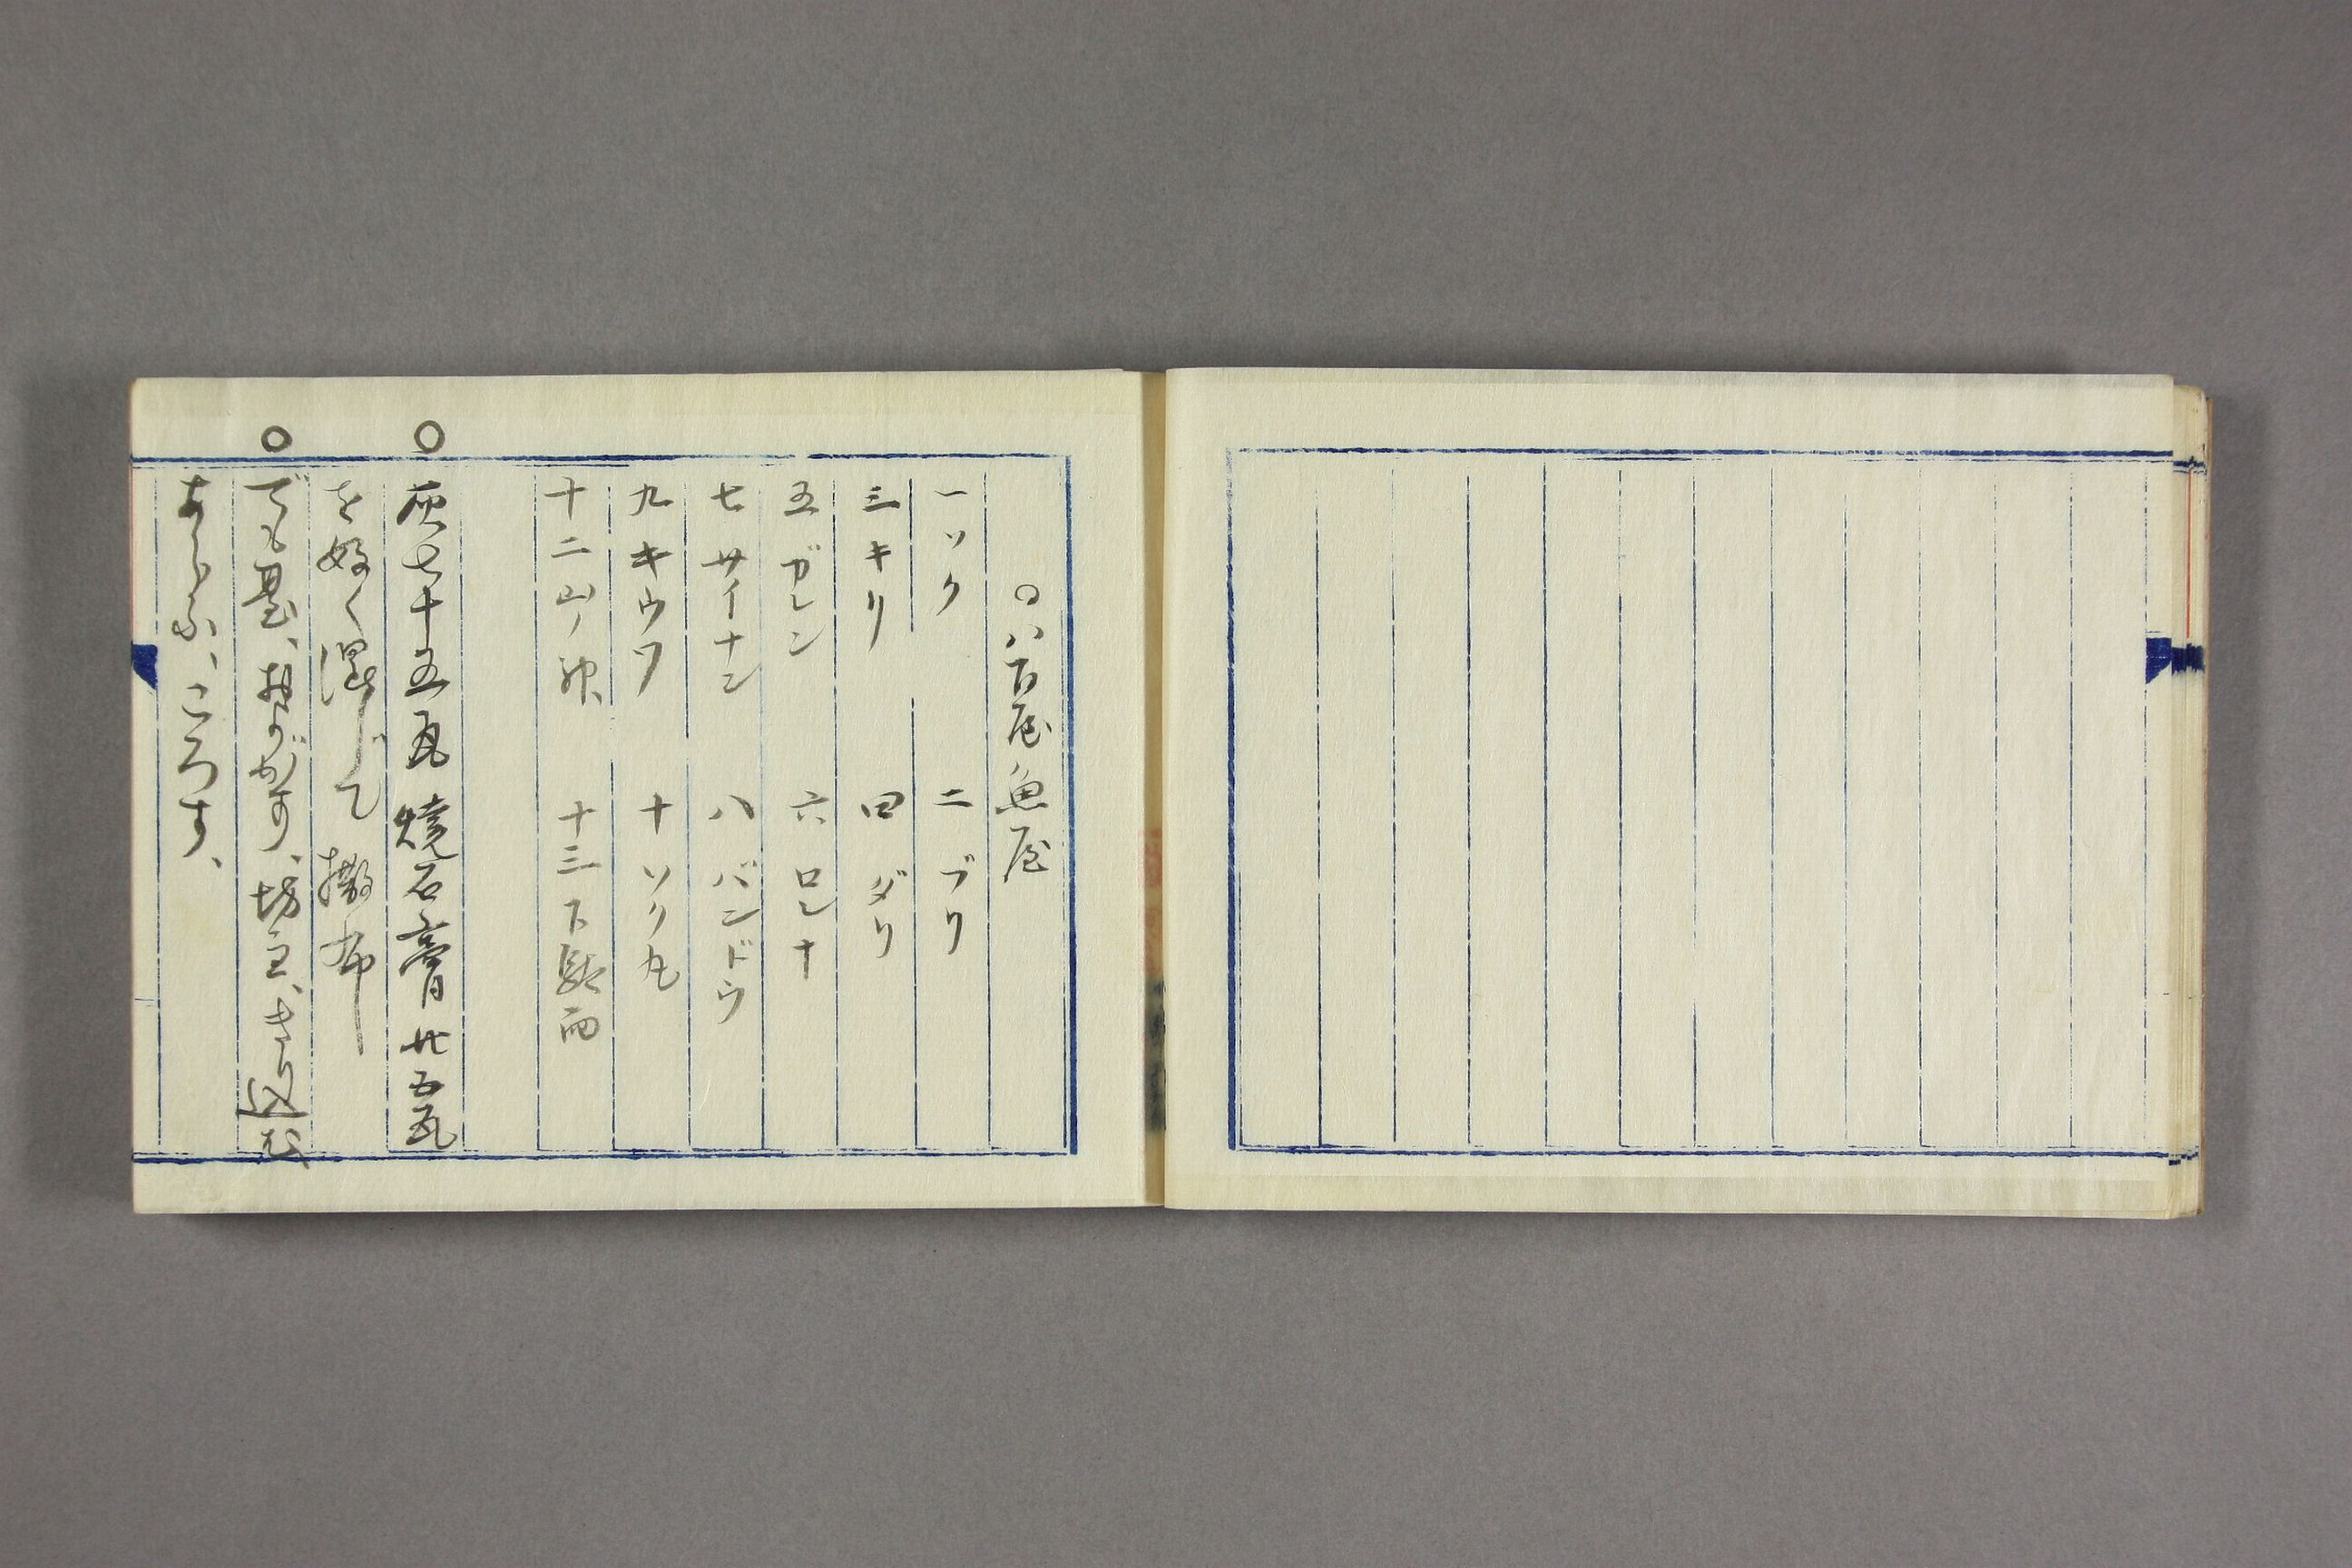 ○八百屋魚屋
一ソク 二ブリ
三キリ 四ダリ
五ガレン 六ロンナ
七サイナン 八バンドウ
九キウワ 十ソク丸
十二山ノ神 十三下駄
○灰七十五瓦焼石膏廿五瓦
を好く混じて撒布
○でも墨、おがかす、坊主、きり込む
あらふ、ころす、